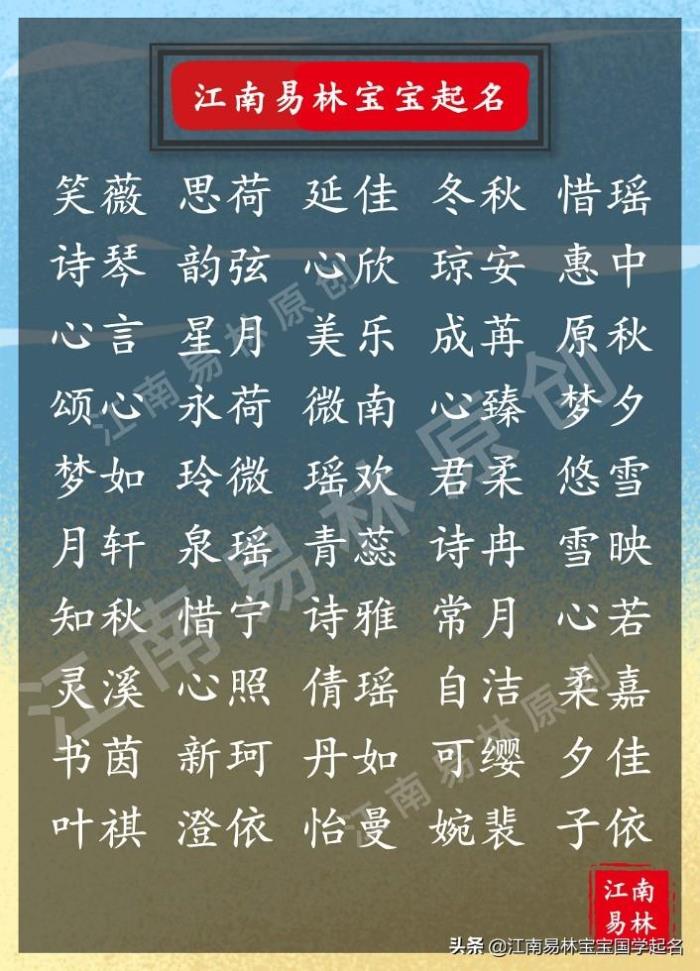 江南易林宝宝起名
笑薇 思荷 延佳 冬秋 惜瑶
诗琴 韵弦 心欣 琼安 惠中
心言 星月 美乐 成苒 原秋
颂心 永荷 微南 心臻 梦夕
梦如 玲微 瑶欢 君柔 悠雪
月轩 泉瑶 青蕊 诗冉 雪映
知秋 惜宁 诗雅 常月 心若
灵溪 心照 倩瑶 自洁 柔嘉
书茵 新珂 丹如 可缨 夕佳
叶祺 澄依 怡曼 婉裴 子依
江南易林原创
江南易林原创
江南易林原创
江南
易林
头条 @江南易林宝宝国学起名